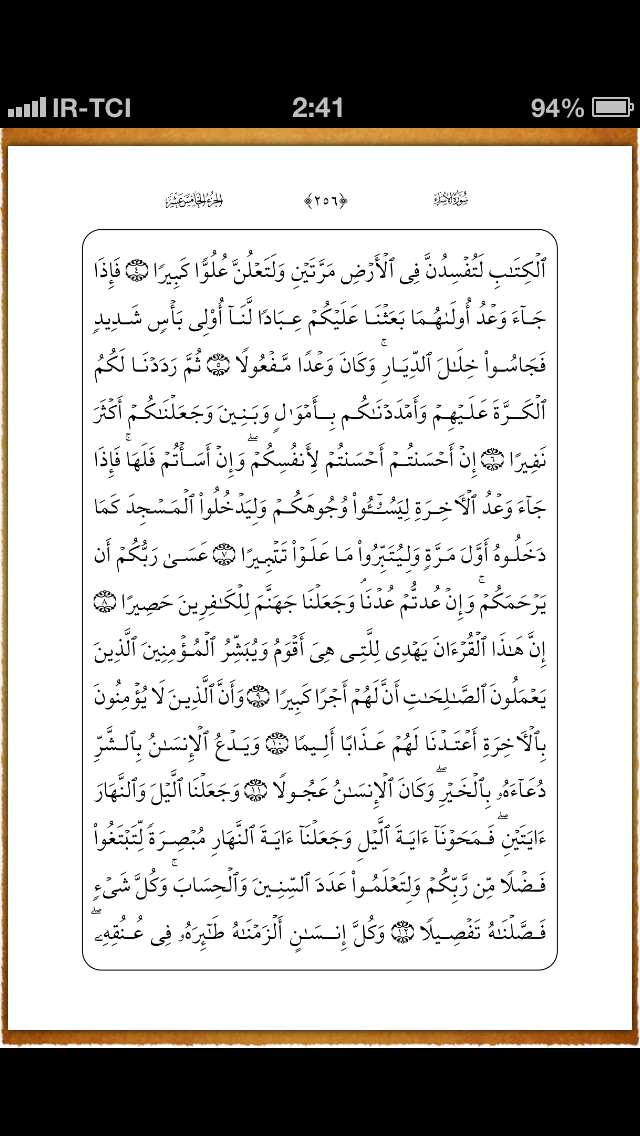 IR-TCI 2:41 94%
سُورَةُ الإِسْرَاءِ ﴿٢٥٦﴾ الجُزءُ الخَامِسَ عَشَرَ
ٱلْكِتَـٰبِ لَتُفْسِدُنَّ فِى ٱلْأَرْضِ مَرَّتَيْنِ وَلَتَعْلُنَّ عُلُوًّا كَبِيرًا ٤ فَإِذَا
جَآءَ وَعْدُ أُولَىٰهُمَا بَعَثْنَا عَلَيْكُمْ عِبَادًا لَّنَآ أُو۟لِى بَأْسٍ شَدِيدٍ
فَجَاسُوا۟ خِلَـٰلَ ٱلدِّيَارِ ۚ وَكَانَ وَعْدًا مَّفْعُولًا ٥ ثُمَّ رَدَدْنَا لَكُمُ
ٱلْكَرَّةَ عَلَيْهِمْ وَأَمْدَدْنَـٰكُم بِأَمْوَٰلٍ وَبَنِينَ وَجَعَلْنَـٰكُمْ أَكْثَرَ
نَفِيرًا ٦ إِنْ أَحْسَنتُمْ أَحْسَنتُمْ لِأَنفُسِكُمْ ۖ وَإِنْ أَسَأْتُمْ فَلَهَا ۚ فَإِذَا
جَآءَ وَعْدُ ٱلْـَٔاخِرَةِ لِيَسُـۥٓـُٔوا۟ وُجُوهَكُمْ وَلِيَدْخُلُوا۟ ٱلْمَسْجِدَ كَمَا
دَخَلُوهُ أَوَّلَ مَرَّةٍ وَلِيُتَبِّرُوا۟ مَا عَلَوْا۟ تَتْبِيرًا ٧ عَسَىٰ رَبُّكُمْ أَن
يَرْحَمَكُمْ ۚ وَإِنْ عُدتُّمْ عُدْنَا ۘ وَجَعَلْنَا جَهَنَّمَ لِلْكَـٰفِرِينَ حَصِيرًا ٨
إِنَّ هَـٰذَا ٱلْقُرْءَانَ يَهْدِى لِلَّتِى هِىَ أَقْوَمُ وَيُبَشِّرُ ٱلْمُؤْمِنِينَ ٱلَّذِينَ
يَعْمَلُونَ ٱلصَّـٰلِحَـٰتِ أَنَّ لَهُمْ أَجْرًا كَبِيرًا ٩ وَأَنَّ ٱلَّذِينَ لَا يُؤْمِنُونَ
بِٱلْـَٔاخِرَةِ أَعْتَدْنَا لَهُمْ عَذَابًا أَلِيمًا ١٠ وَيَدْعُ ٱلْإِنسَـٰنُ بِٱلشَّرِّ
دُعَآءَهُۥ بِٱلْخَيْرِ ۖ وَكَانَ ٱلْإِنسَـٰنُ عَجُولًا ١١ وَجَعَلْنَا ٱلَّيْلَ وَٱلنَّهَارَ
ءَايَتَيْنِ ۖ فَمَحَوْنَآ ءَايَةَ ٱلَّيْلِ وَجَعَلْنَآ ءَايَةَ ٱلنَّهَارِ مُبْصِرَةً لِّتَبْتَغُوا۟
فَضْلًا مِّن رَّبِّكُمْ وَلِتَعْلَمُوا۟ عَدَدَ ٱلسِّنِينَ وَٱلْحِسَابَ ۚ وَكُلَّ شَىْءٍ
فَصَّلْنَـٰهُ تَفْصِيلًا ١٢ وَكُلَّ إِنسَـٰنٍ أَلْزَمْنَـٰهُ طَـٰٓئِرَهُۥ فِى عُنُقِهِۦ ۖ